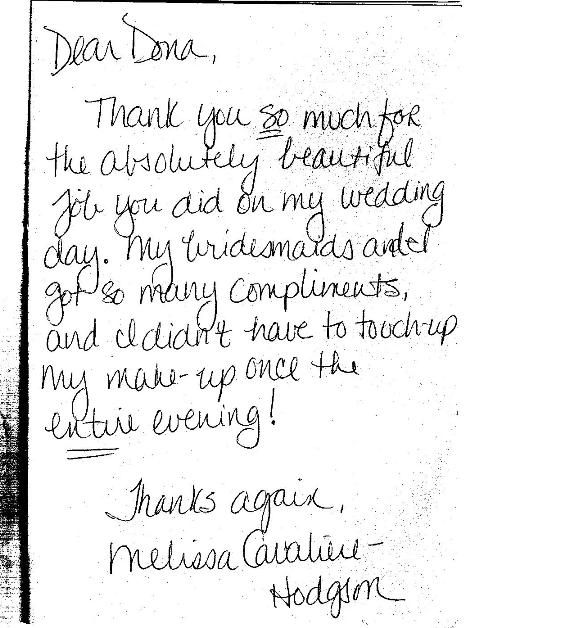 Dear Dona,
Thank you so much for
the absolutely beautiful
job you did on my wedding
day. My bridesmaids and I
got so many compliments,
and I didn't have to touch-up
my make-up once the
entire evening!
Thanks again,
Melissa Cavaliere-
Hodgson